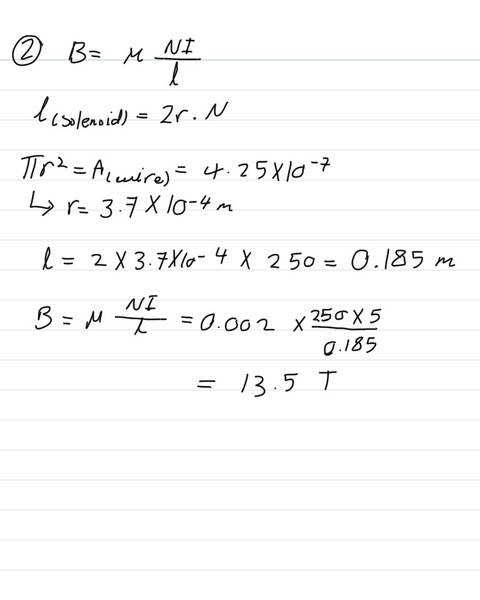 ② B = μ NI/l
l(solenoid) = 2r . N
πr² = A(wire) = 4.25X10⁻⁷
↳ r = 3.7 X 10⁻⁴ m
l = 2 X 3.7X10⁻⁴ X 250 = 0.185 m
B = μ NI/L = 0.002 X 250 X 5/0.185
= 13.5 T